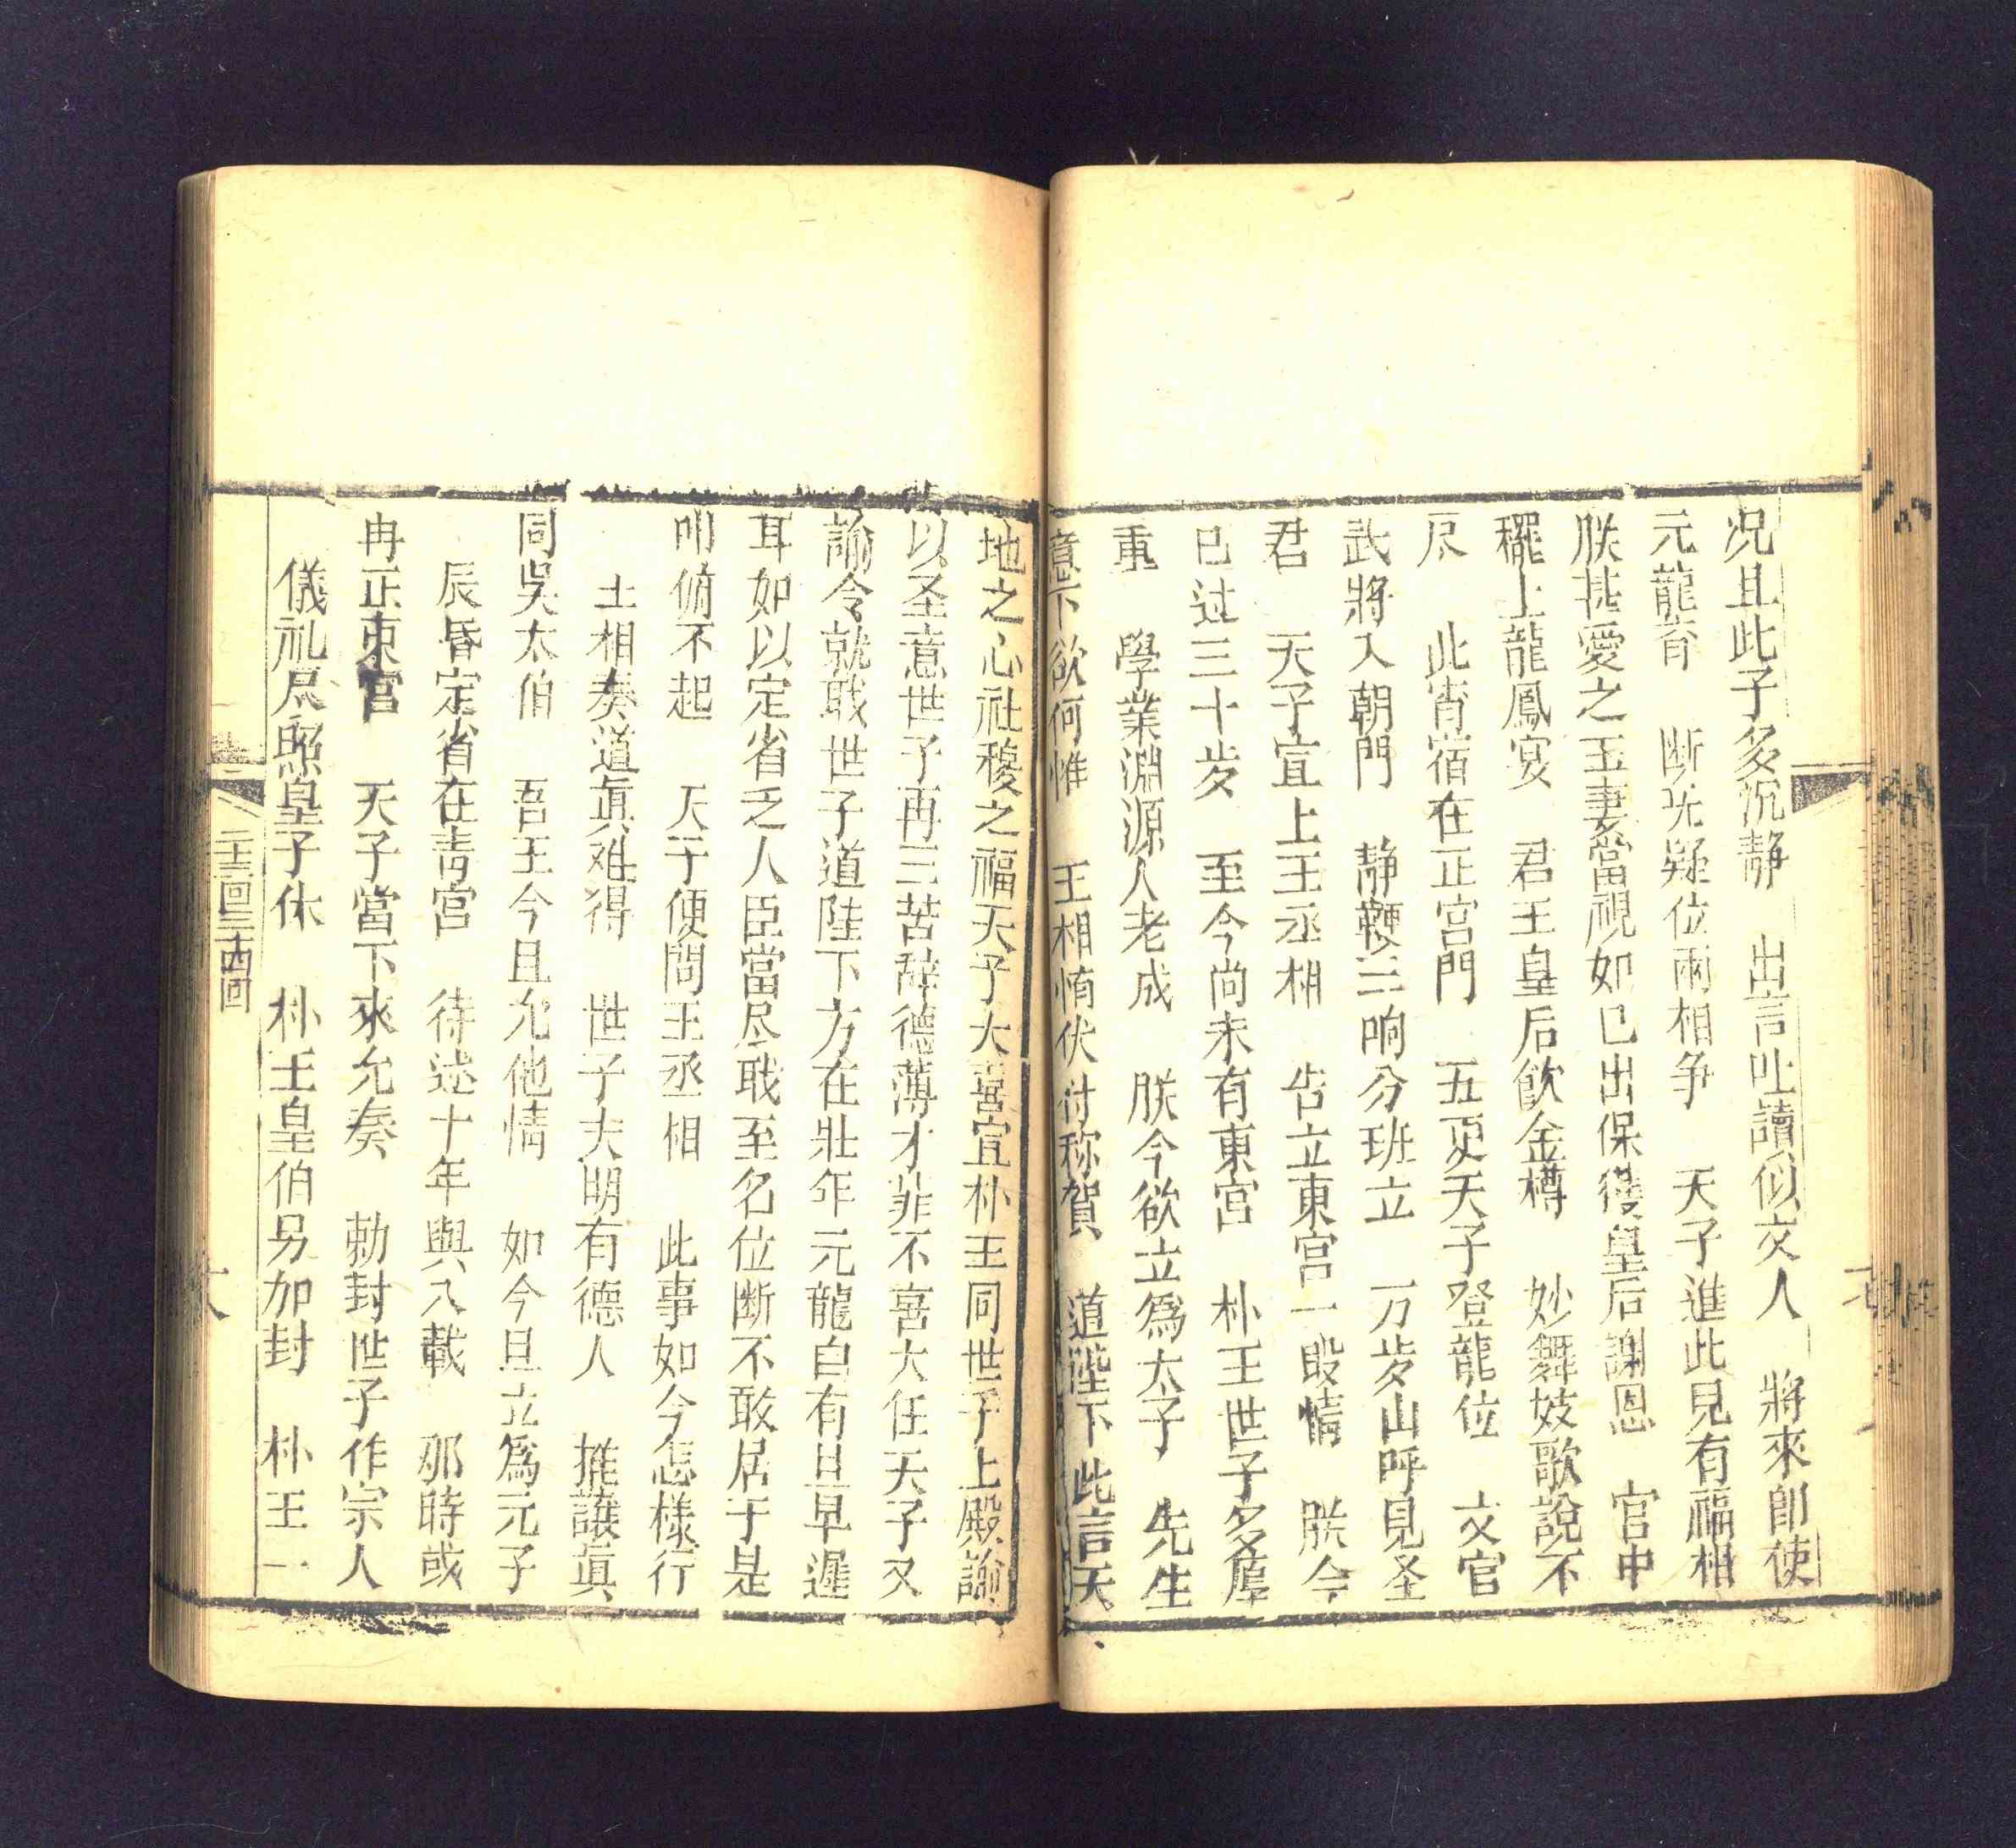 况且此子多沉静　出言吐讀似文人　將來即使
元龍育　断旡疑位兩相争　天子進此見有福相
朕甚愛之玉妻當視如已出保後皇后謝恩　官中
擺上龍鳳宴　君王皇后飲金樽　妙舞妓歌說不
尽　此宵宿在正宫門　五更天子登龍位　文官
武將入朝門　静鞭三响分班立　万岁山呼見圣
君　天子宜上王丞相　告立東宫一段情　朕今
已过三十岁　至今尚未有東宫　朴王世子多厚
重　學業淵源人老成　朕今欲立爲太子　先生
意下欲何惟　王相脩伏討称賀　道陛下此言天
地之心社稷之福天子大喜宣朴王同世子上殿諭
以圣意世子再三苦辞德薄才菲不喜大任天子又
諭令就戢世子道陛下方在壯年元龍自有旦早遲
耳如以定省乏人臣當尽戢至名位断不敢居于是
叩俯不起　天子便問王丞相　此事如今怎樣行
土相奏道眞难得　世子夫明有德人　推讓眞
同吳太伯　吾王今且允他情　如今旦立爲元子
辰昏定省在青宫　待述十年與八載　那時或
冉正東宫　天子當下來允奏　勅封世子作宗人
儀礼尽照皇子休　朴王皇伯另加封　朴王一
二十三回三十四回